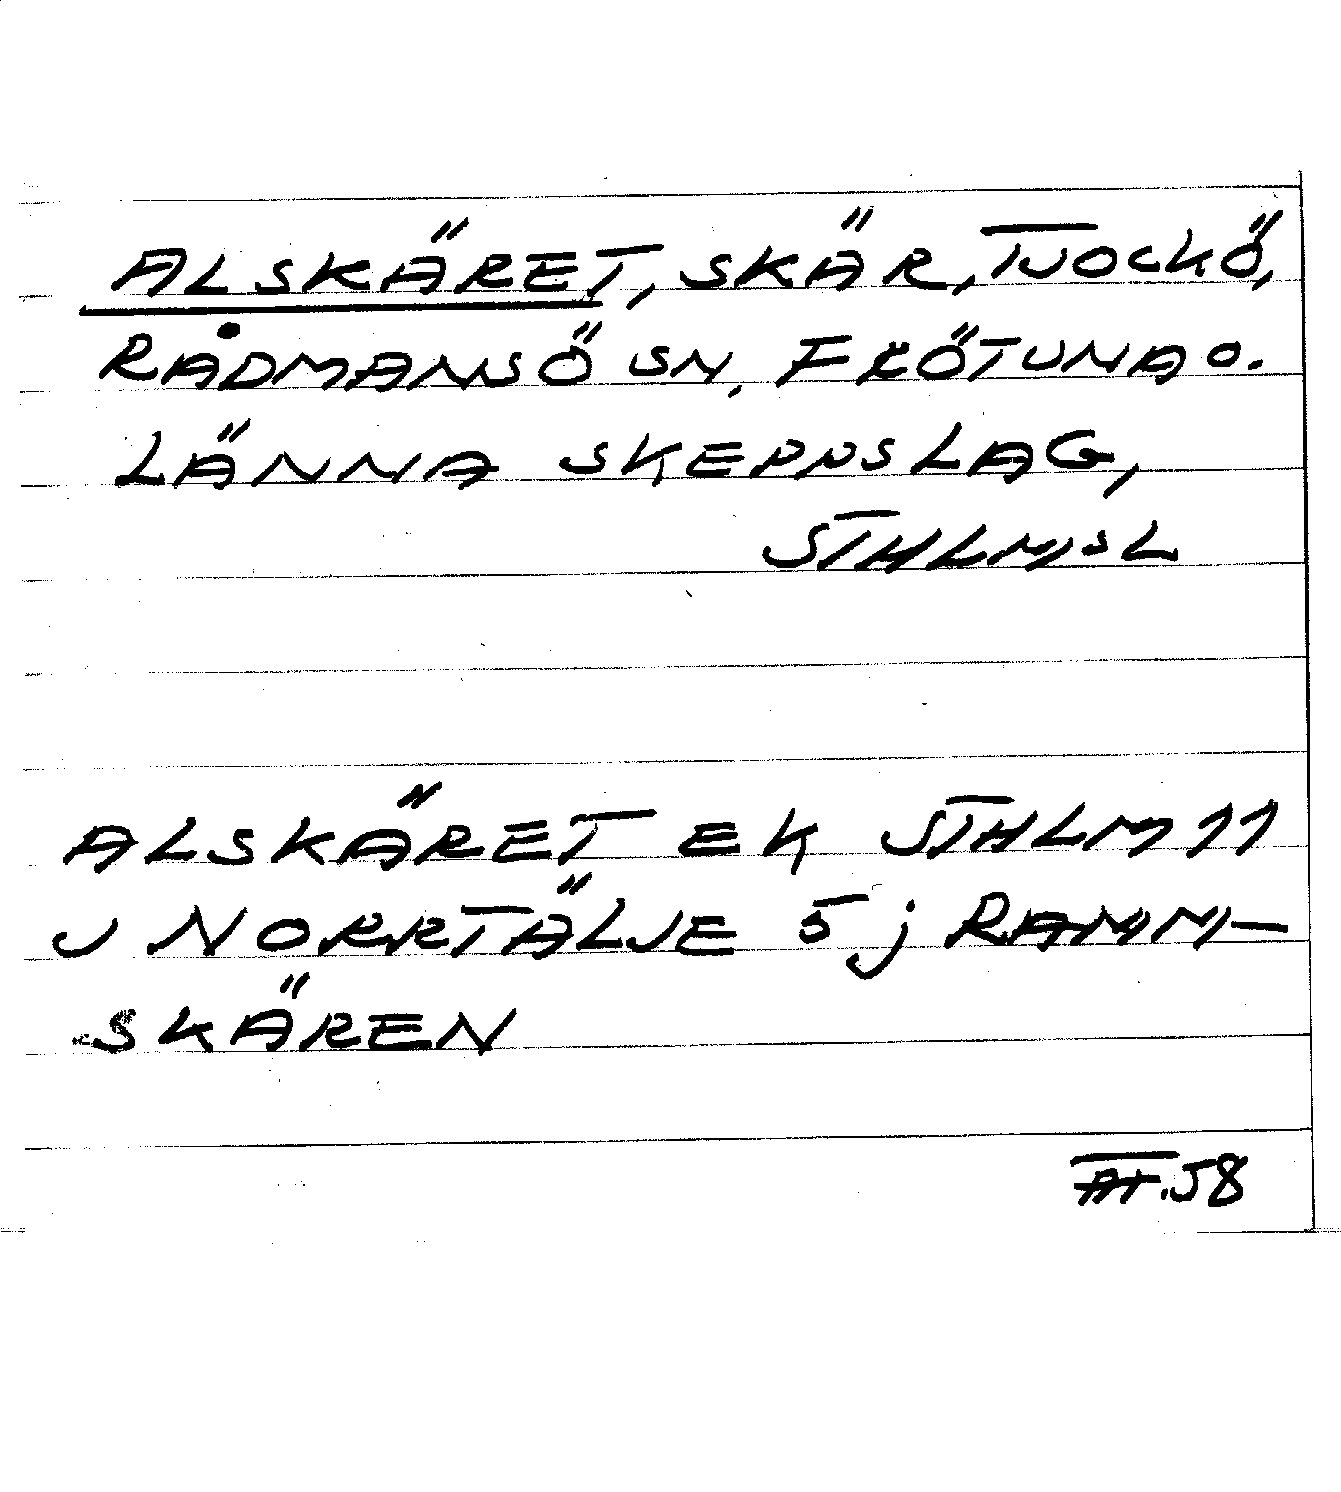 ALSKÄRET, SKÄR, TJOCKÖ,
RÅDMANSÖ SN, FRÖTUNA O.
LÄNNA SKEPPSLAG,
STHLMSL
ALSKÄRET EK STHLM 11
J NORRTÄLJE 5 j RAMM-
SKÄREN
.58